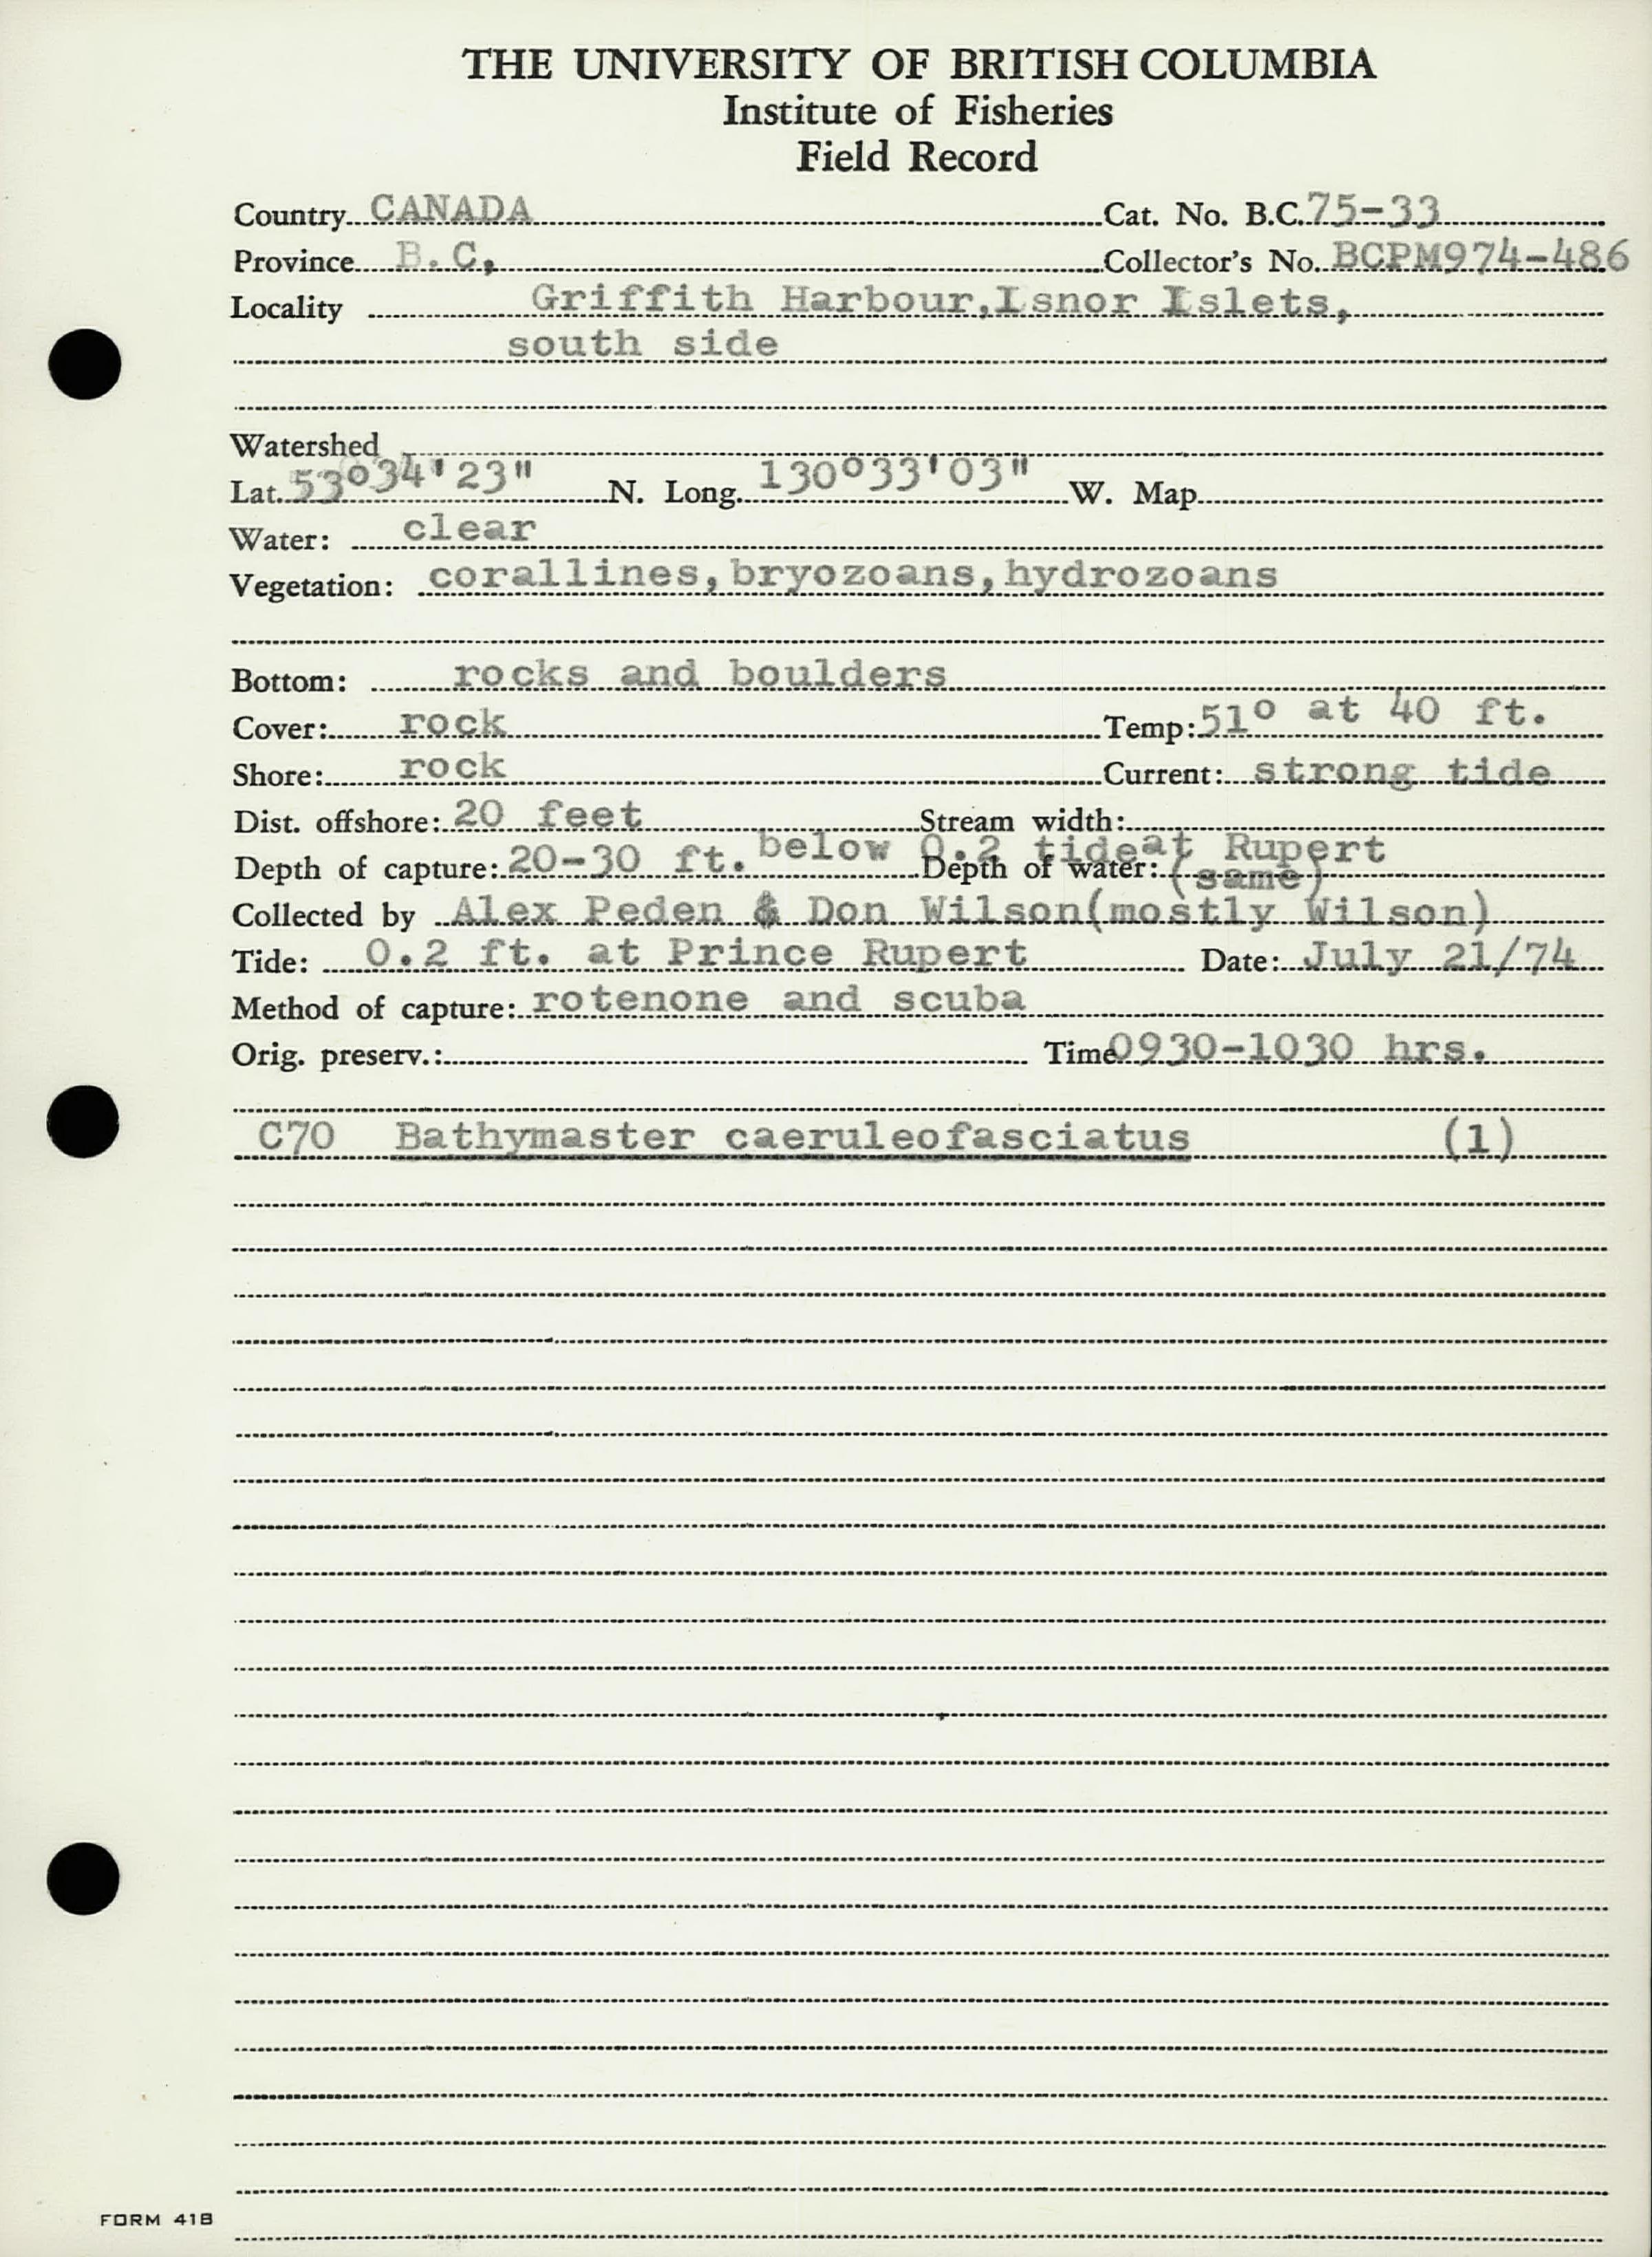 THE UNIVERSITY OF BRITISH COLUMBIA
Institute of Fisheries
Field Record
Country CANADA Cat. No. B.C. 75-33
Province B.C. Collector's No. BCPM974-486
Locality Griffith Harbour, Isnor Islets,
south side
Watershed
Lat. 53°34'23" N. Long. 130°33'03" W. Map
Water: clear
Vegetation: corallines, bryozoans, hydrozoans
Bottom: rocks and boulders
Cover: rock Temp: 51° at 40 ft.
Shore: rock Current: strong tide
Dist. offshore: 20 feet Stream width:
Depth of capture: 20-30 ft. below 0.2 tide at Rupert Depth of water: (same)
Collected by Alex Peden & Don Wilson (mostly Wilson)
Tide: 0.2 ft. at Prince Rupert Date: July 21/74
Method of capture: rotenone and scuba
Orig. preserv.: Time 0930-1030 hrs.
C70 Bathymaster caeruleofasciatus (1)
FORM 41B